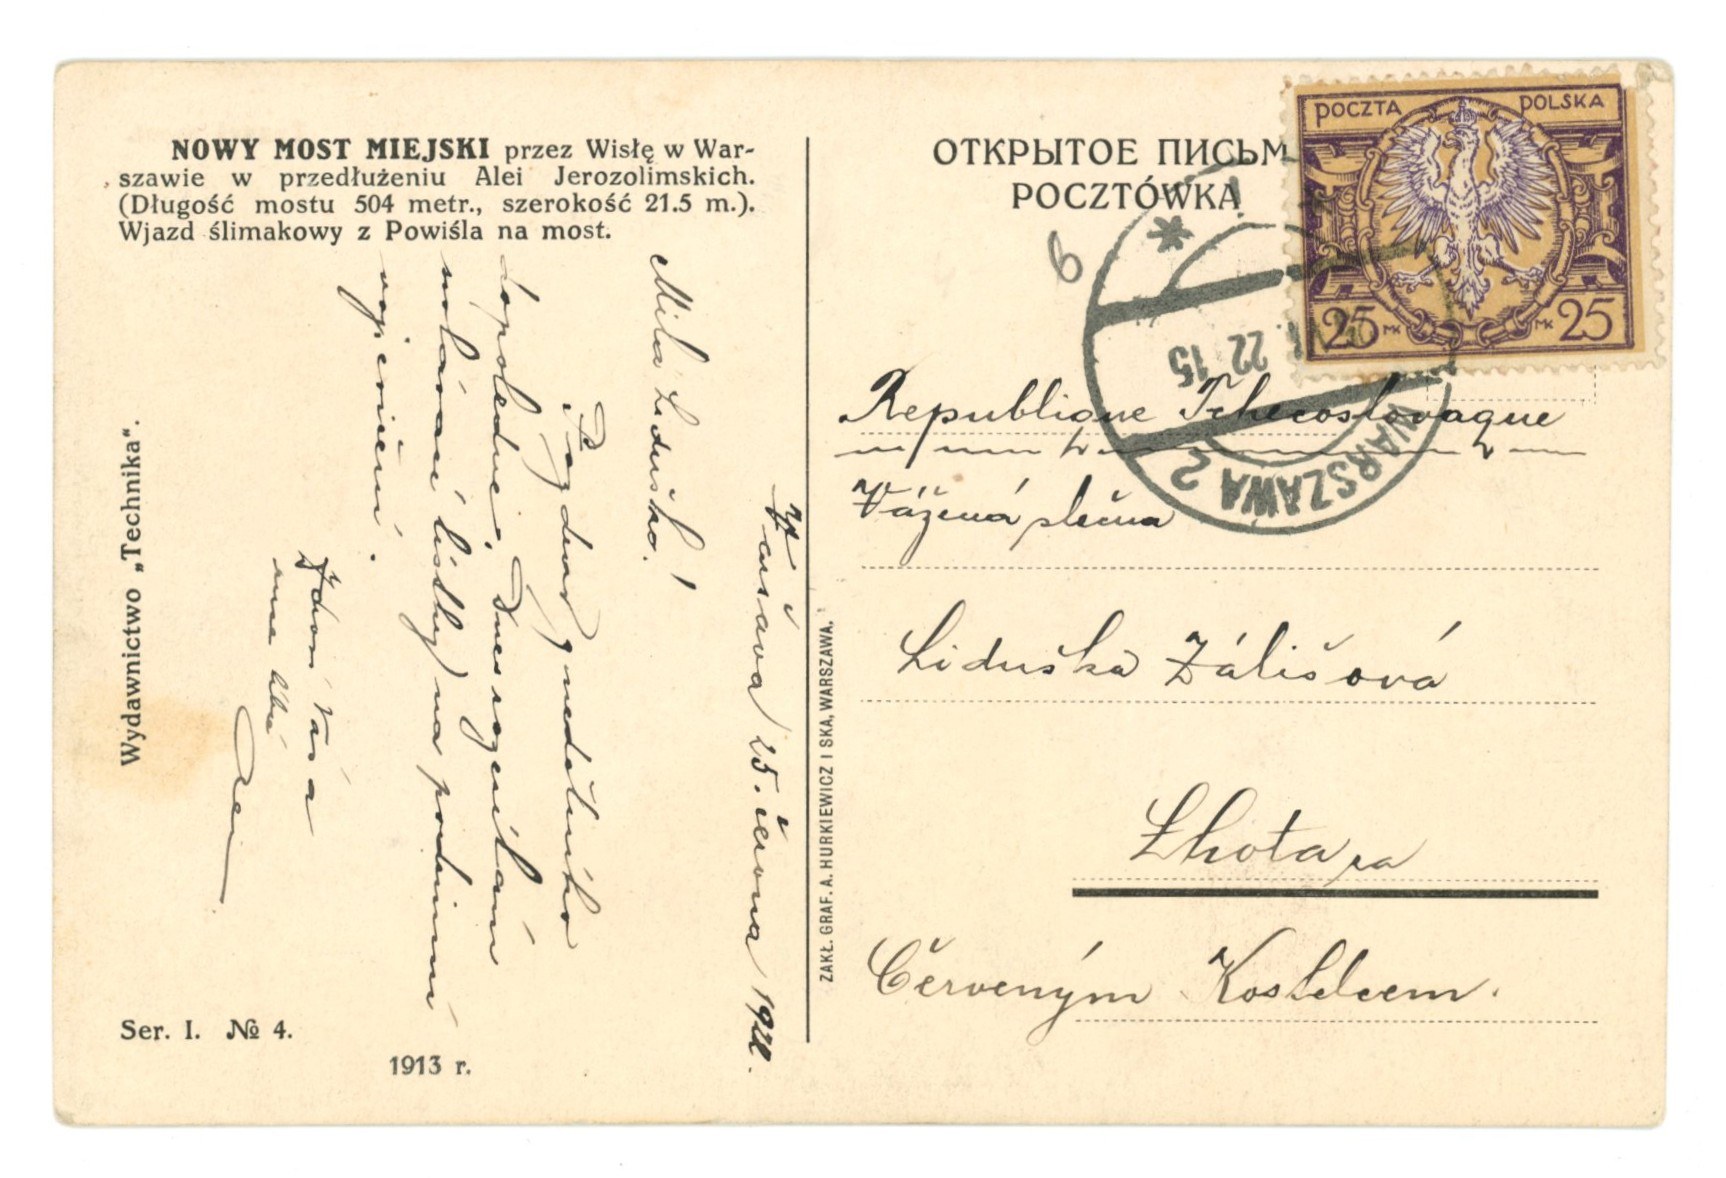 NOWY MOST MIEJSKI przez Wisłę w War-
szawie w przedłużeniu Alei Jerozolimskich.
(Długość mostu 504 metr., szerokość 21.5 m.).
Wjazd ślimakowy z Powiśla na most.
Varšava 25. června 1922.
Milá Liduško!
Pozdrav z nedělního
dopoledne. Dnes
lístky na
Vása
Wydawnictwo „Technika“.
Ser. I. № 4.
1913 r.
ZAKŁ. GRAF. A. HURKIEWICZ I SKA, WARSZAWA.
ОТКРЫТОЕ ПИСЬМ
POCZTÓWKA
POCZTA POLSKA
25 MK MK 25
9
VI. 22 15
WARSZAWA 2
Republique Tchecoslovaque
Vážená slečna
Liduška Zálišová
Lhota za
Červeným Kostelcem.